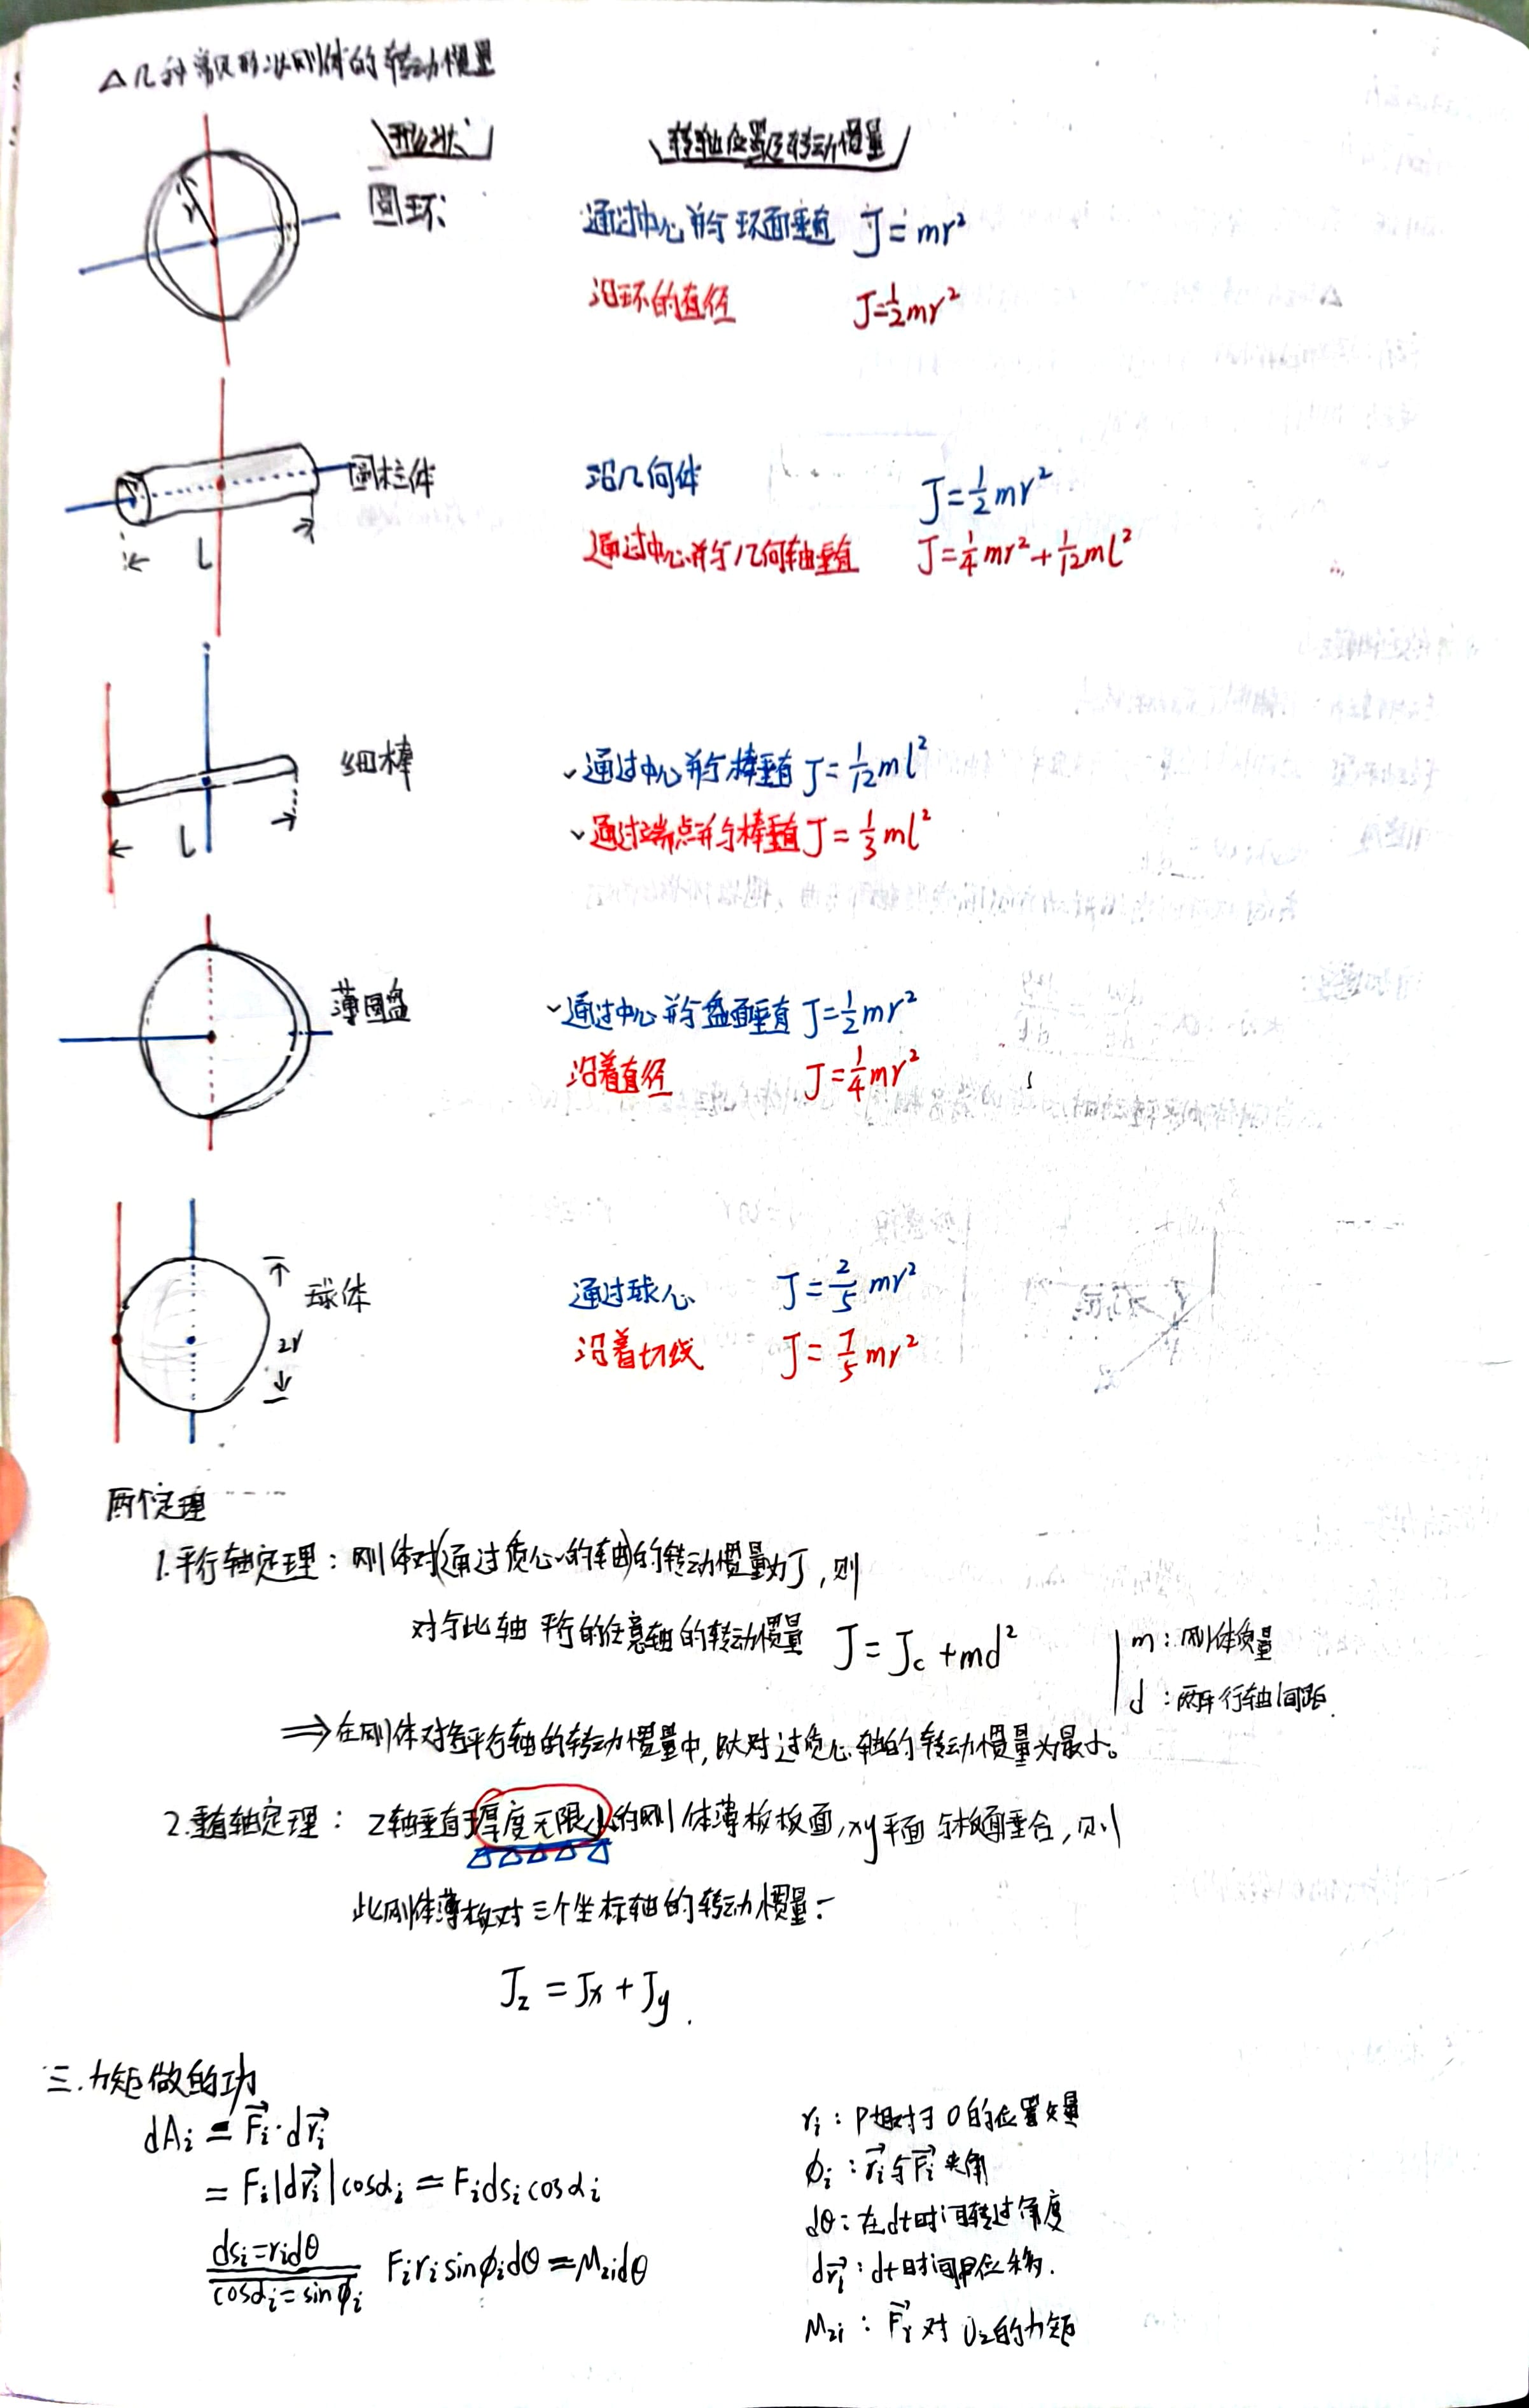 △几种常见形状刚体的转动惯量
形状 转轴位置及转动惯量
r
圆环: 通过中心并与环面垂直 J=mr²
沿环的直径 J=½mr²
圆柱体 沿几何体 J=½mr²
通过中心并与几何轴垂直 J=¼mr²+1/12ml²
l
细棒 通过中心并与棒垂直 J=1/12ml²
通过端点并与棒垂直 J=⅓ml²
l
薄圆盘 通过中心并与盘面垂直 J=½mr²
沿着直径 J=¼mr²
球体 通过球心 J=⅖mr²
2r 沿着切线 J=7/5mr²
两个定理
1.平行轴定理:刚体对(通过质心的轴)的转动惯量为J,则
对与此轴平行的任意轴的转动惯量 J=J_c+md² m:刚体质量
d:两平行轴间距.
⇒在刚体对各平行轴的转动惯量中,以对过质心轴的转动惯量为最小。
2.垂直轴定理: Z轴垂直于厚度无限小的刚体薄板板面,xy平面与板面重合,则
此刚体薄板对三个坐标轴的转动惯量:
J_z=J_x+J_y.
三.力矩做的功
dA_i=F⃗_i·dr⃗_i r_i:P相对于O的位置矢量
=F_i|dr⃗_i|cosα_i=F_ids_icosα_i ϕ_i:r⃗_i与F⃗_i夹角
ds_i=r_idθ dθ:在dt时间转过角度
cosα_i=sinϕ_i F_ir_isinϕ_idθ=M_zidθ dr⃗_i:dt时间P位移.
M_zi:F⃗_i对O_z的力矩